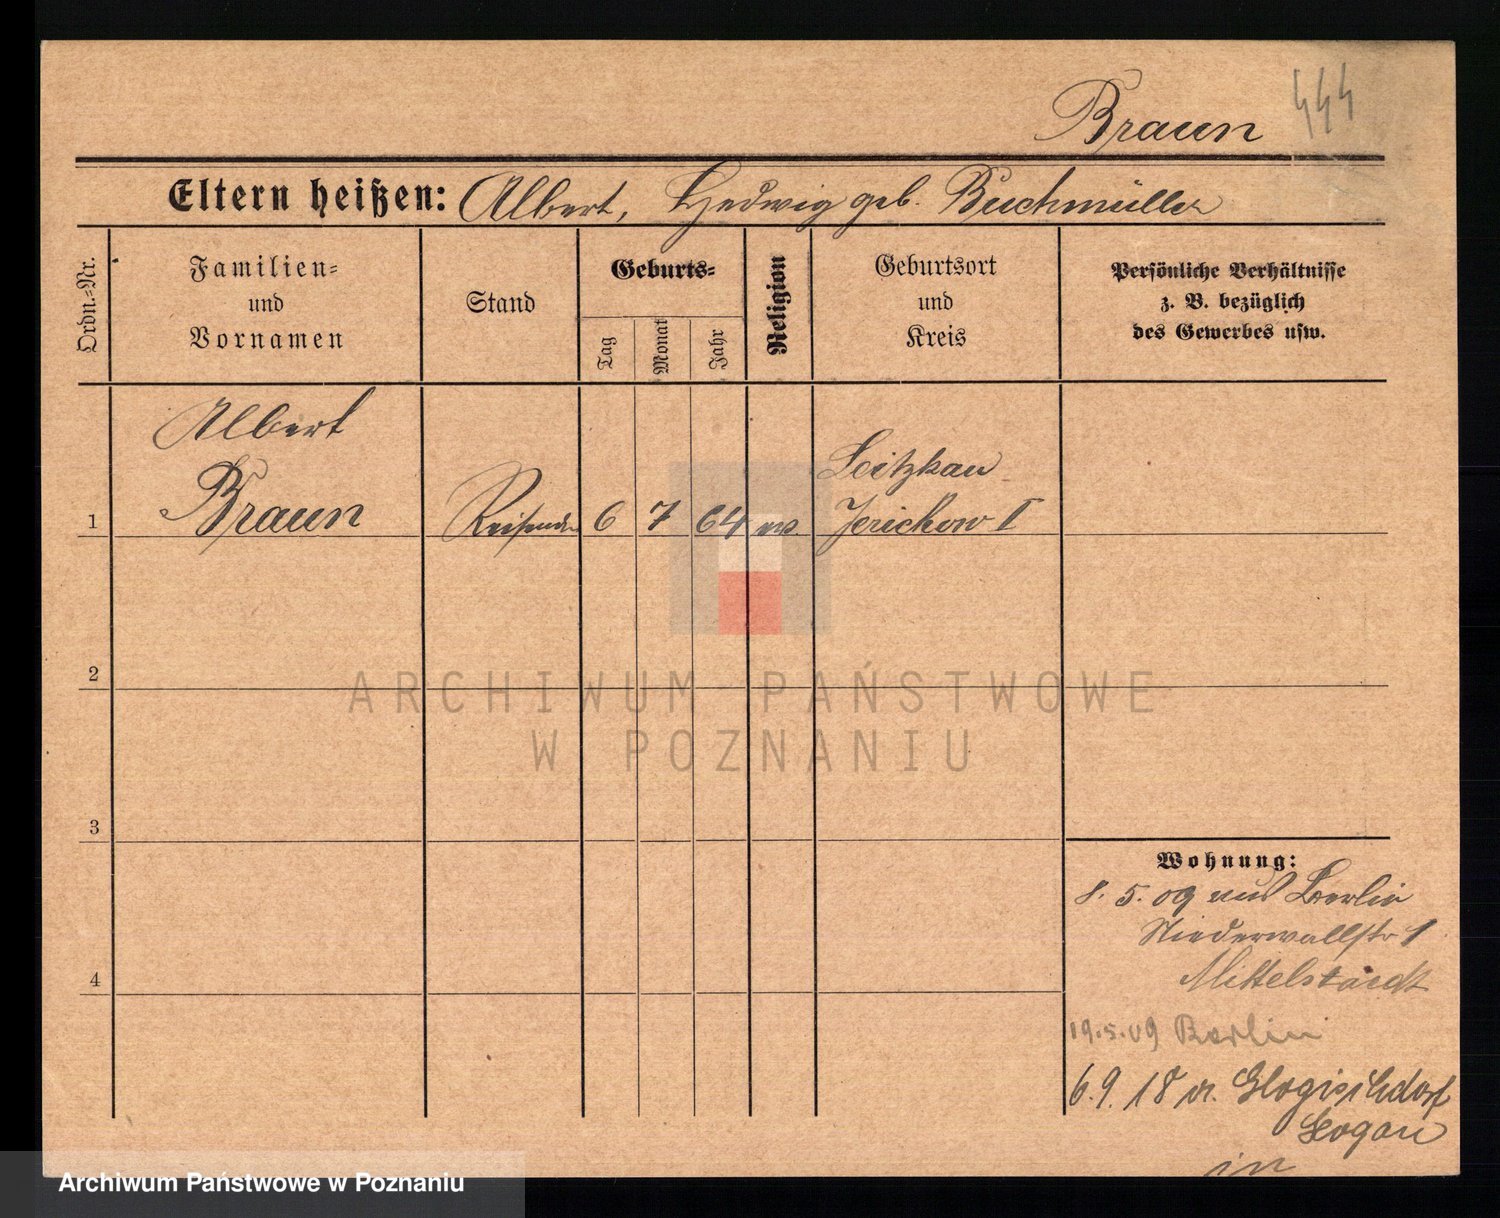 Braun
444
Eltern heißen: Albert, Hedwig geb. Buchmüller
Ordn.=Nr.
Familien=
und
Vornamen
Stand
Geburts=
Tag
Monat
Jahr
Religion
Geburtsort
und
Kreis
Persönliche Verhältnisse
z. B. bezüglich
des Gewerbes usw.
Albert
1 Braun Reisender 6 7 64
Leitzkau
Jerichow I
2
3
4
Wohnung:
8. 5. 09 aus Berlin
Niederwallstr 1
Mittelstaedt
19.5.09 Berlin
6.9.18 n.
in
ARCHIWUM PAŃSTWOWE
W POZNANIU
Archiwum Państwowe w Poznaniu